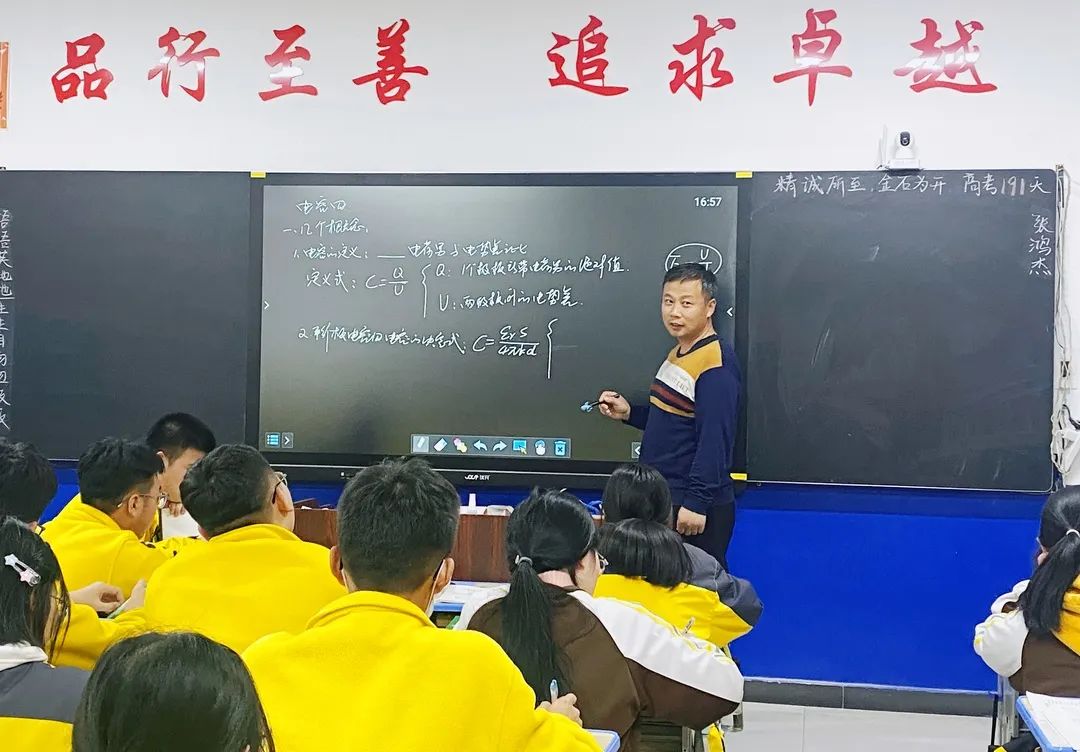 品行至善 追求卓越
精诚所至,金石为开 高考191天
张鸿杰
16:57
电容四
一、几个概念:
1.电容的定义: ___电荷量与电势差之比
定义式: C=Q/U { Q: 1个极板所带电荷量的绝对值.
U: 两极板间的电势差.
2.平行板电容的电容的决定式: C=εrS/4πkd {
语语英